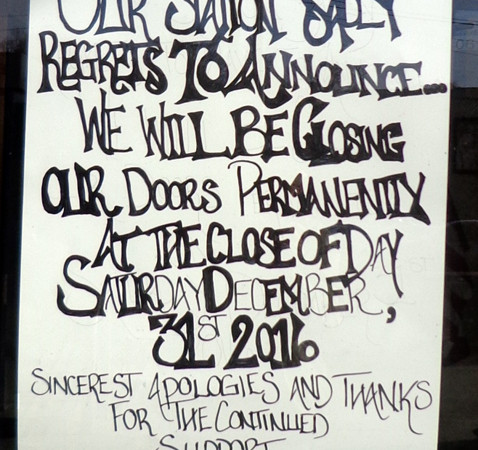 OUR STATION SADLY
REGRETS TO ANNOUNCE...
WE WILL BE CLOSING
OUR DOORS PERMANENTLY
AT THE CLOSE OF DAY
SATURDAY DECEMBER,
31ST 2016
SINCEREST APOLOGIES AND THANKS
FOR THE CONTINUED
SUPPORT